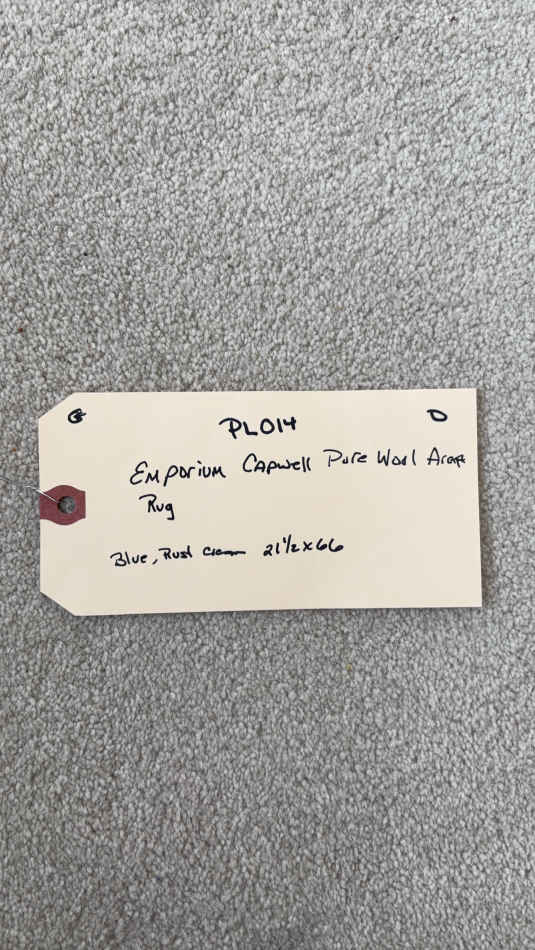 G D
PL014
Emporium Capwell Pure Wool Area
Rug
Blue, Rust Cream 21 1/2 x 66